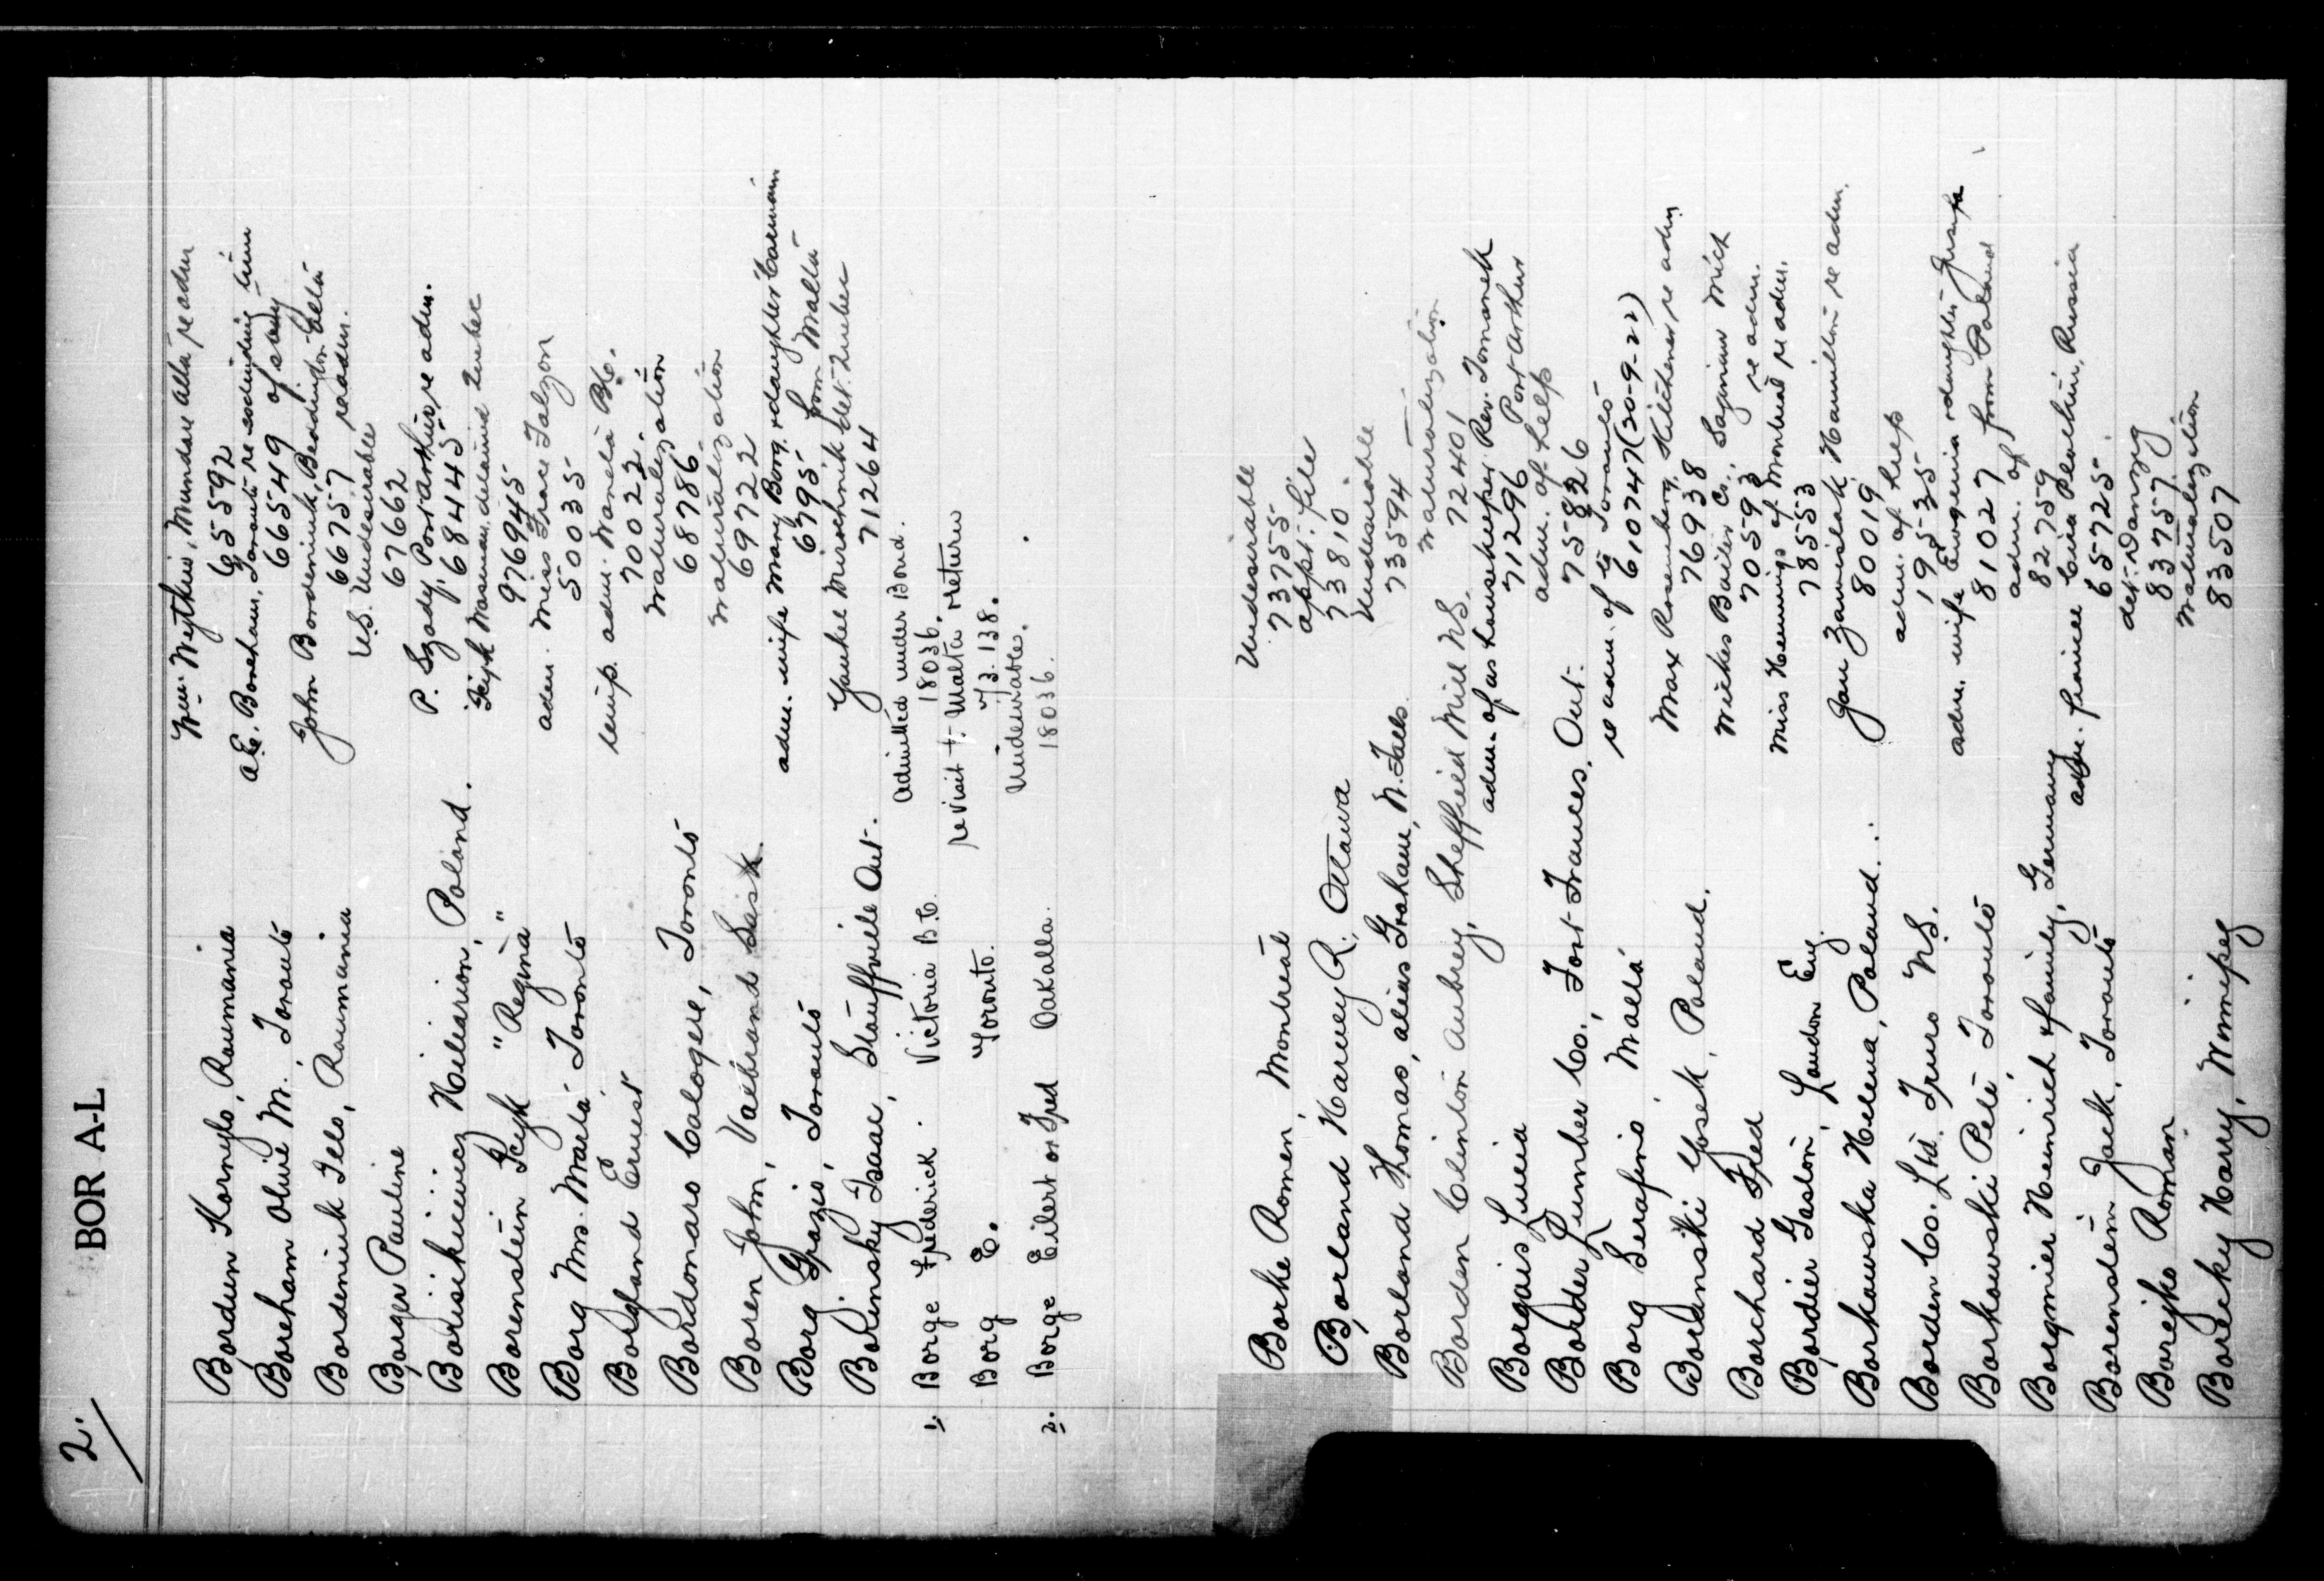 2.
BOR A-L
Wm. Wytkiw, Mundare Alta re adm
Bordun Kornylo, Roumania 65592
A.E. Boreham, Toronto re
Boreham Olive M., Toronto 66549
John Bordeniuk, Beddington Alta
Bordeniuk Ilko, Roumania 66757 re adm.
U.S. Undesirable
Borger Pauline 67662
P. Szody, Port Arthur, re adm.
Borisikiewicz Hilarion, Poland. 68445
Icyk Wasman, detained Quebec
Borenstein Icyk "Regina" 976945
adm. Miss Grace Falzon
Borg Mrs. Marta Toronto 50035
temp. adm. Waneta B.C.
Borgland Ernest 70022.
Naturalization
Bordonaro Calogere, Toronto 68786
Naturalization
Boren John, Valbrand Sask. 69722
adm. wife Mary Borg & daughter Carmian
Borg Grazio, Toronto 6795 from Malta
Yankel Mirochnik det. Quebec
Borinsky Isaac, Stauffville Ont. 71264
Admitted under Bond.
1. Borge Frederick. Victoria B.C. 18036.
re visit to Malta & return
Borg E. Toronto. 73138.
Undesirable.
2. Borge Eilert or Fred Oakalla. 18036.
Undesirable
Borke Romen, Montreal 73755
appt. file
Borland Harvey R., Ottawa 73810.
Undesirable
Borland Thomas, alias Graham, N. Falls 73594
Naturalization
Borden Clinton Aubrey, Sheffield Mill N.S. 72401
adm. of as housekeeper Rev. Tomanek
Borgais Lucia 71296 Port Arthur
adm. of help
Border Lumber Co., Fort Frances, Ont. 75826
re adm. of to Toronto
Borg Serafino, Malta 610747 (30-9-22)
Max Rosenberg, Kitchener re adm
Boranski Yosek, Poland. 76938
Wickes Boiler Co., Saginaw Mich
Borchard Fred 70593 re adm.
Miss Hennings of Montreal re adm.
Bordier Gaston, London Eng. 78553
Jan Zawislak Hamilton re adm.
Borkowska Helena, Poland. 80019
adm. of help
Borden Co. Ltd. Truro N.S. 19535
adm. wife Eugenia & daughter
Borkowski Pete, Toronto 81027 from Poland
adm. of
Borgmier Heinrich & family, Germany 82759
adm. fiancee Russia
Borenstein Jack, Toronto 65725
det. Danzig
Borejko Roman 83757
Naturalization
Borecky Harry, Winnipeg 83507